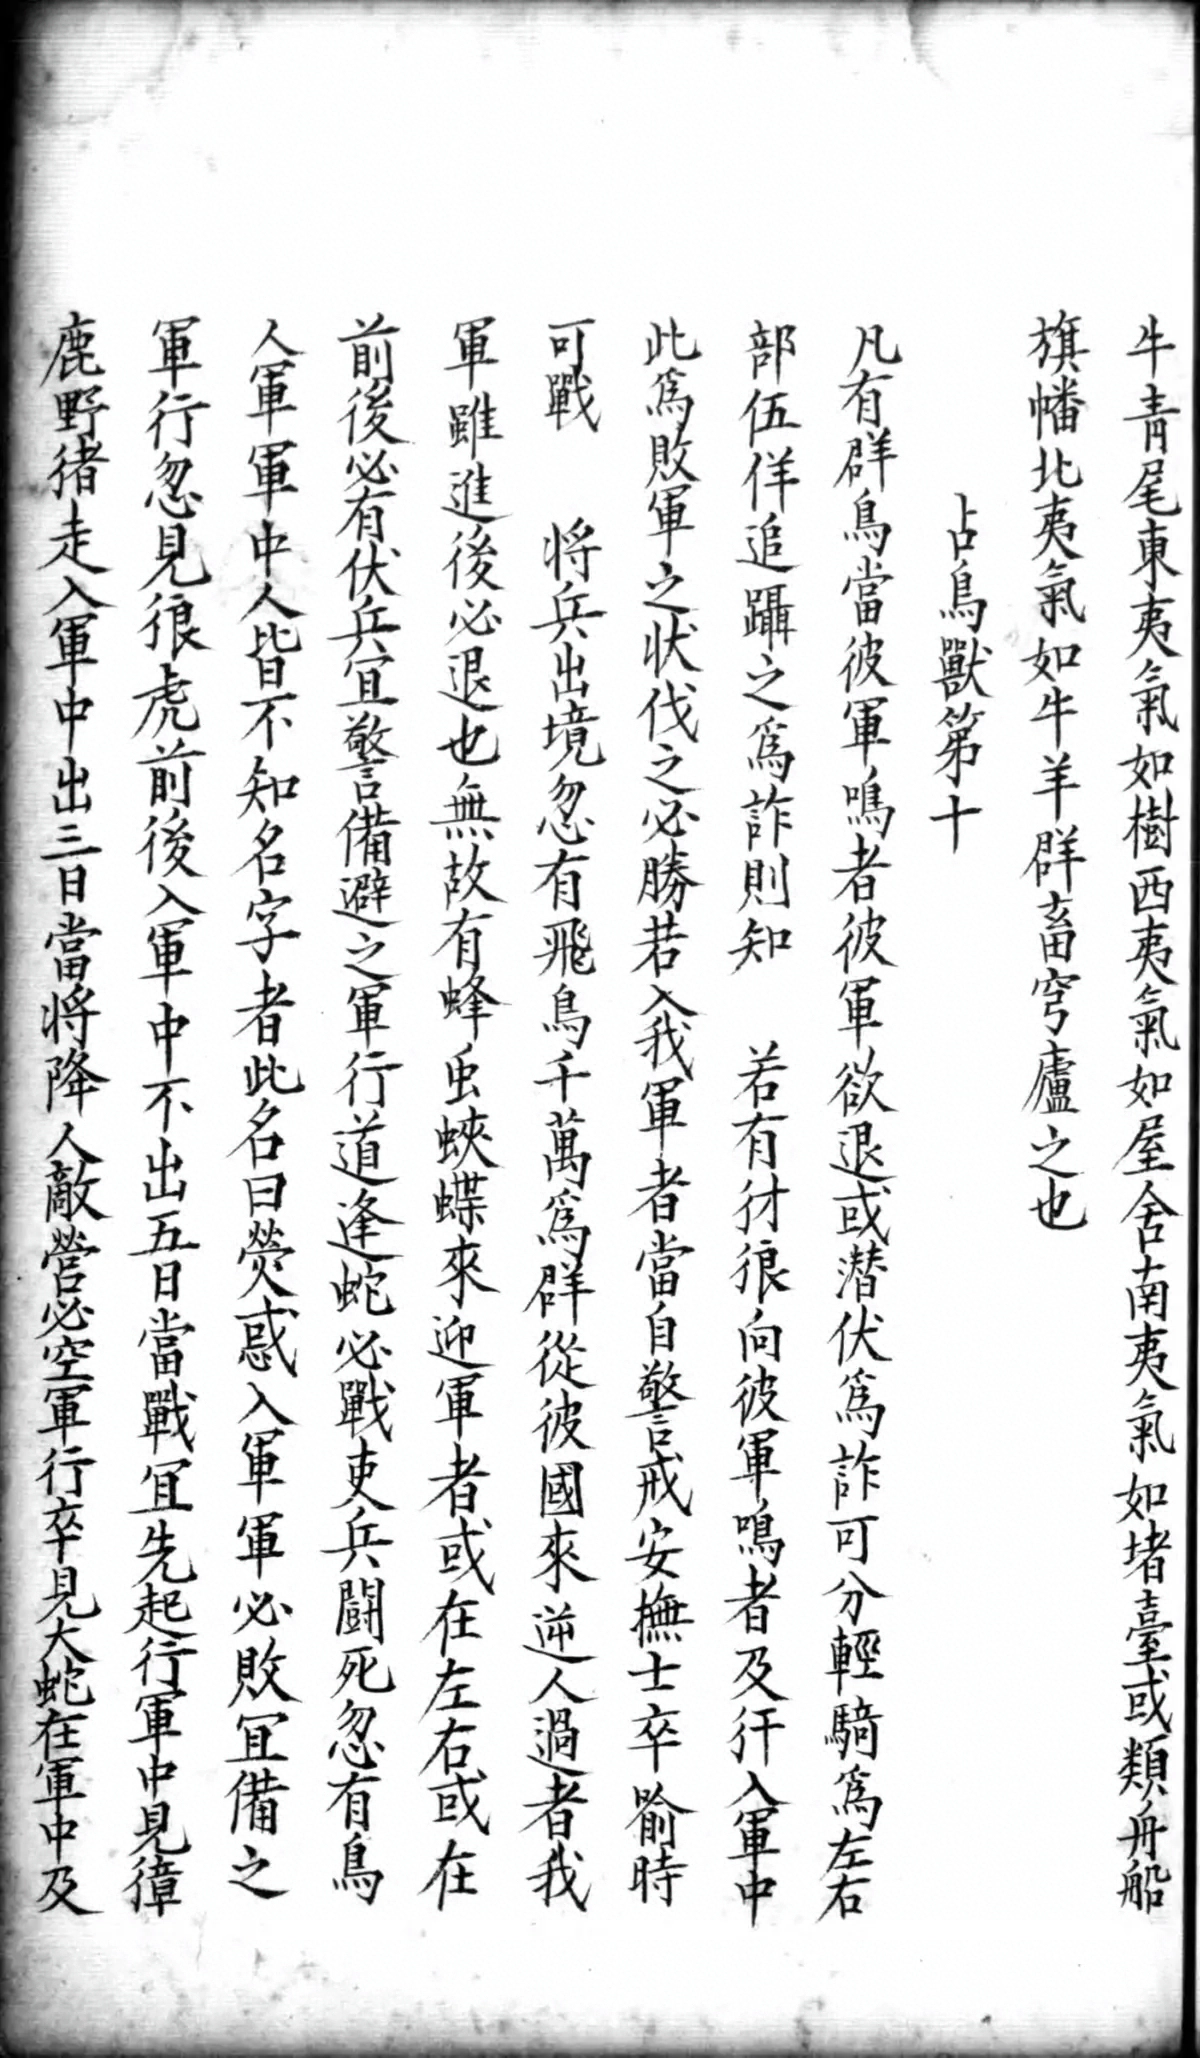 牛青尾東夷氣如樹西夷氣如屋舍南夷氣如堵臺或類舟船
旗幡北夷氣如牛羊群畜穹廬之也
占鳥獸第十
凡有群鳥當彼軍鳴者彼軍欲退或潜伏爲詐可分輕騎爲左右
部伍佯追躡之爲詐則知　若有犲狼向彼軍鳴者及犴入軍中
此爲敗軍之状伐之必勝若入我軍者當自警戒安撫士卒喻時
可戰　将兵出境忽有飛鳥千萬爲群從彼國來逆人過者我
軍雖進後必退也無故有蜂虫蛺蝶來迎軍者或在左右或在
前後必有伏兵冝警備避之軍行道逢蛇必戰吏兵闘死忽有鳥
人軍軍中人皆不知名字者此名曰熒惑入軍軍必敗冝備之
軍行忽見狼虎前後入軍中不出五日當戰冝先起行軍中見獐
鹿野猪走入軍中出三日當将降人敵營必空軍行卒見大蛇在軍中及